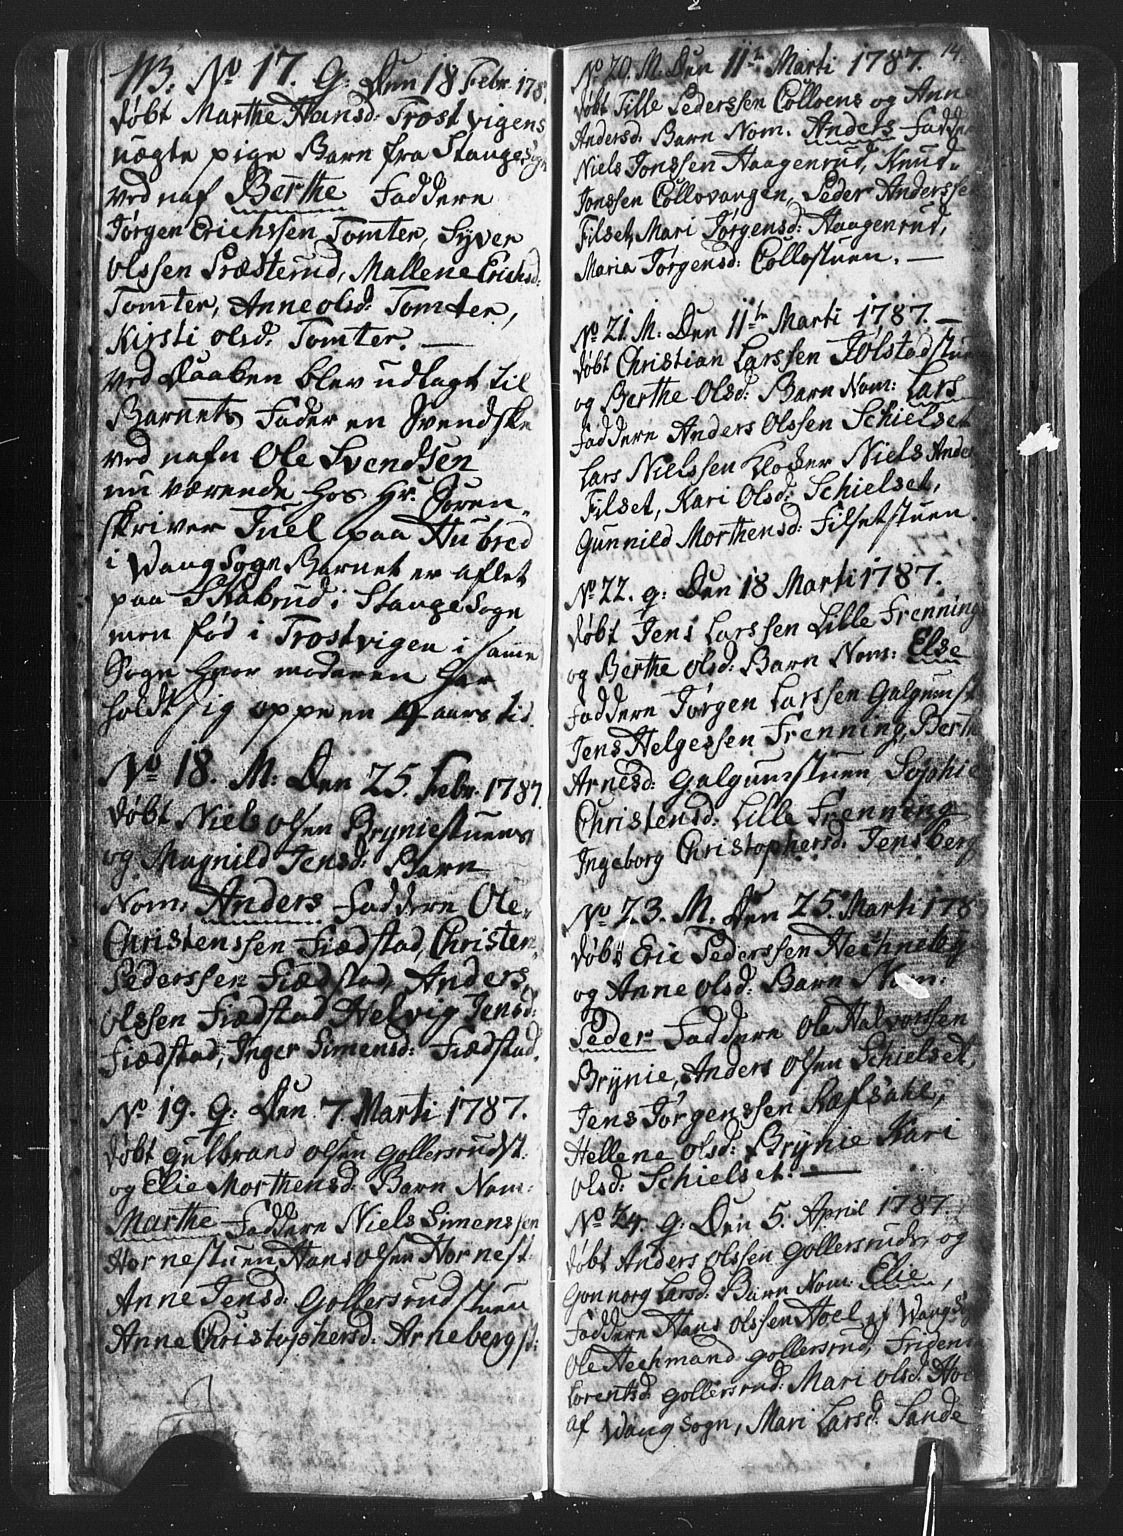 113. No 17. G: Den 18 Febr. 178
døbt Marthe Hansd: Trostvigens
uægte pige Barn fra StangeSogn
ved nafn Berthe Faddere
Jørgen Erichssen Tomter, Syver
olssen Præsterud, Mallene Erichsd:
Tomter, Anne olsd: Tomter,
Kirsti olsd: Tomter. —
ved Daaben blev udlagt til
Barnets Fader en Svendske
ved nafn Ole Svendsen
nu værende hos Hr. Soren-
skriver Juel paa Hubred
i WangSogn Barnet er aflet
paa Skabrud i StangeSogn
men fød i Trostvigen i samme
Sogn hvor moderen har
holdt sig oppe en 4 aars tid.
No 18. M: Den 25. Febr. 1787.
døbt Niels olsen Bryniestuens
og Magnild Jensd: Barn
Nom: Anders Faddere Ole
Christenssen Fiædstad, Christen
Pederssen Fiædstad, Anders
olssen Fiædstad Helvig Jensd:
Fiædstad, Inger Simensd: Fiædstad.
No 19. G: Den 7. Marti 1787.
døbt Gulbrand olsen Gollersrudst:
og Elie Morthensd: Barn Nom:
Marthe Faddere Niels Simenssen
Hornestuen Hans olsen Hornest:
Anne Jensd: Gollersrudstuen
Anne Christophersd: Arnebergst:
14.
No 20. M. Den 11te Marti 1787.
døbt Pille Pederssen Colloens og Anne
Andersd: Barn Nom. Anders Faddere
Niels Jonssen Haagenrud, Knud
Jonssen Collovangen, Peder Anderssen
Filset, Mari Jørgensd: Haagenrud,
Maria Jørgensd: Collostuen. —
No 21. M: Den 11te Marti 1787. —
døbt Christian Larssen Tølstadstuen
og Berthe Olsd: Barn Nom: Lars
Faddere Anders Olssen Schielset
Lars Nielssen Klocker Niels Anders
Filset, Kari Olsd: Schielset,
Gunnild Morthensd: Filsetstuen.
No 22. G: Den 18 Marti 1787.
døbt Jens Larssen Lille Frenning
og Berthe olsd: Barn Nom: Else
Faddere Jørgen Larssen Galgumst
Jens Helgessen Frenning, Berthe
Arnesd: Galgumstuen Sophie
Christensd: Lille Frenning
Ingeborg Christophersd: Jensberg
No 23. M. Den 25. Marti 178
døbt Eric Pederssen Hechneby
og Anne olsd: Barn Nom:
Peder Faddere Ole Halvorssen
Brynie, Anders olsen Schielset,
Jens Jørgenssen Ræfsahl,
Hellene olsd: Brynie Kari
olsd: Schielset. —
No 24. G: Den 5. April 1787.
døbt Anders olssen Gollersruds og
Gonnorg Larsd: Barn Nom: Elie,
Faddere Hans olssen Hoel af WangSog
Ole Hechmand Gollersrud,
Lorentsd: Gollersrud: Mari olsd: Hoel
af WangSogn, Mari Larsd: Sande